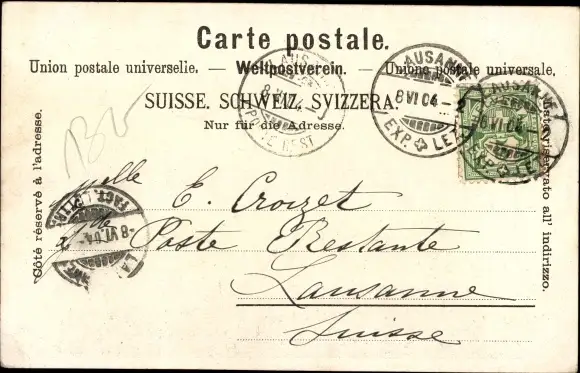 Carte postale.
Union postale universelle. — Weltpostverein. — Unione postale universale.
SUISSE. SCHWEIZ. SVIZZERA.
Nur für die Adresse.
Côté réservé à l'adresse.
riservato all' indirizzo.
LAUSANNE
8 VI 04
EXP. LETT.
LAUSANNE
VI 04
EXP. LETT.
8 VI 04
POSTE REST
8 VI 04
Mlle E. Croizet
Poste Restante
Lausanne
Suisse